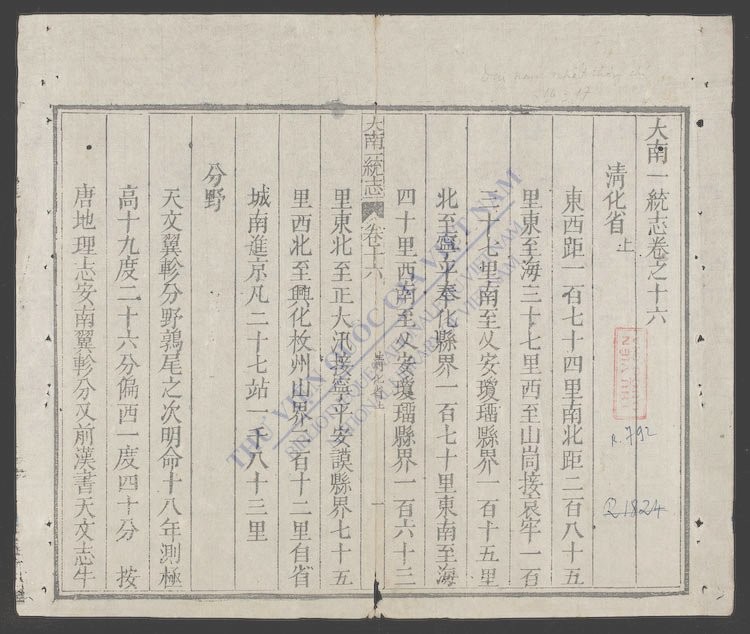 Đại nam nhất thống chí
16-17
大南一統志卷之十六
清化省上
東西距一百七十四里南北距二百八十五
里東至海三十七里西至山峝接哀牢一百
三十七里南至乂安瓊瑠縣界一百十五里
北至寧平奉化縣界一百七十里東南至海
四十里西南至乂安瓊瑠縣界一百六十三
大南一統志 卷十六 清化省上 一
里東北至正大汛接寧平安謨縣界七十五
里西北至興化枚州山界二百十二里自省
城南進京凡二十七站一千八十三里
分野
天文翼軫分野鶉尾之次明命十八年測極
高十九度二十六分偏西一度四十分 按
唐地理志安南翼軫分又前漢書天文志牛
THƯ VIỆN QUỐC GIA VIỆT NAM
R.792
Q1824